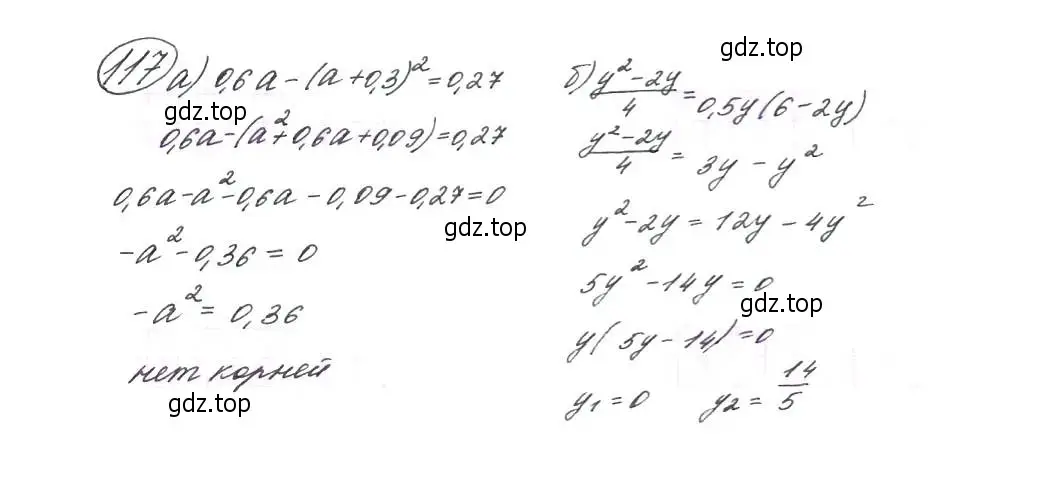 117 а) 0,6a - (a + 0,3)² = 0,27
gdz.top
0,6a - (a² + 0,6a + 0,09) = 0,27
0,6a - a² - 0,6a - 0,09 - 0,27 = 0
gdz.top
-a² - 0,36 = 0
-a² = 0,36
нет корней
gdz.top
gdz.top
б) (y² - 2y)/4 = 0,5y(6 - 2y)
(y² - 2y)/4 = 3y - y²
y² - 2y = 12y - 4y²
5y² - 14y = 0
gdz.top
y(5y - 14) = 0
y₁ = 0 y₂ = 14/5